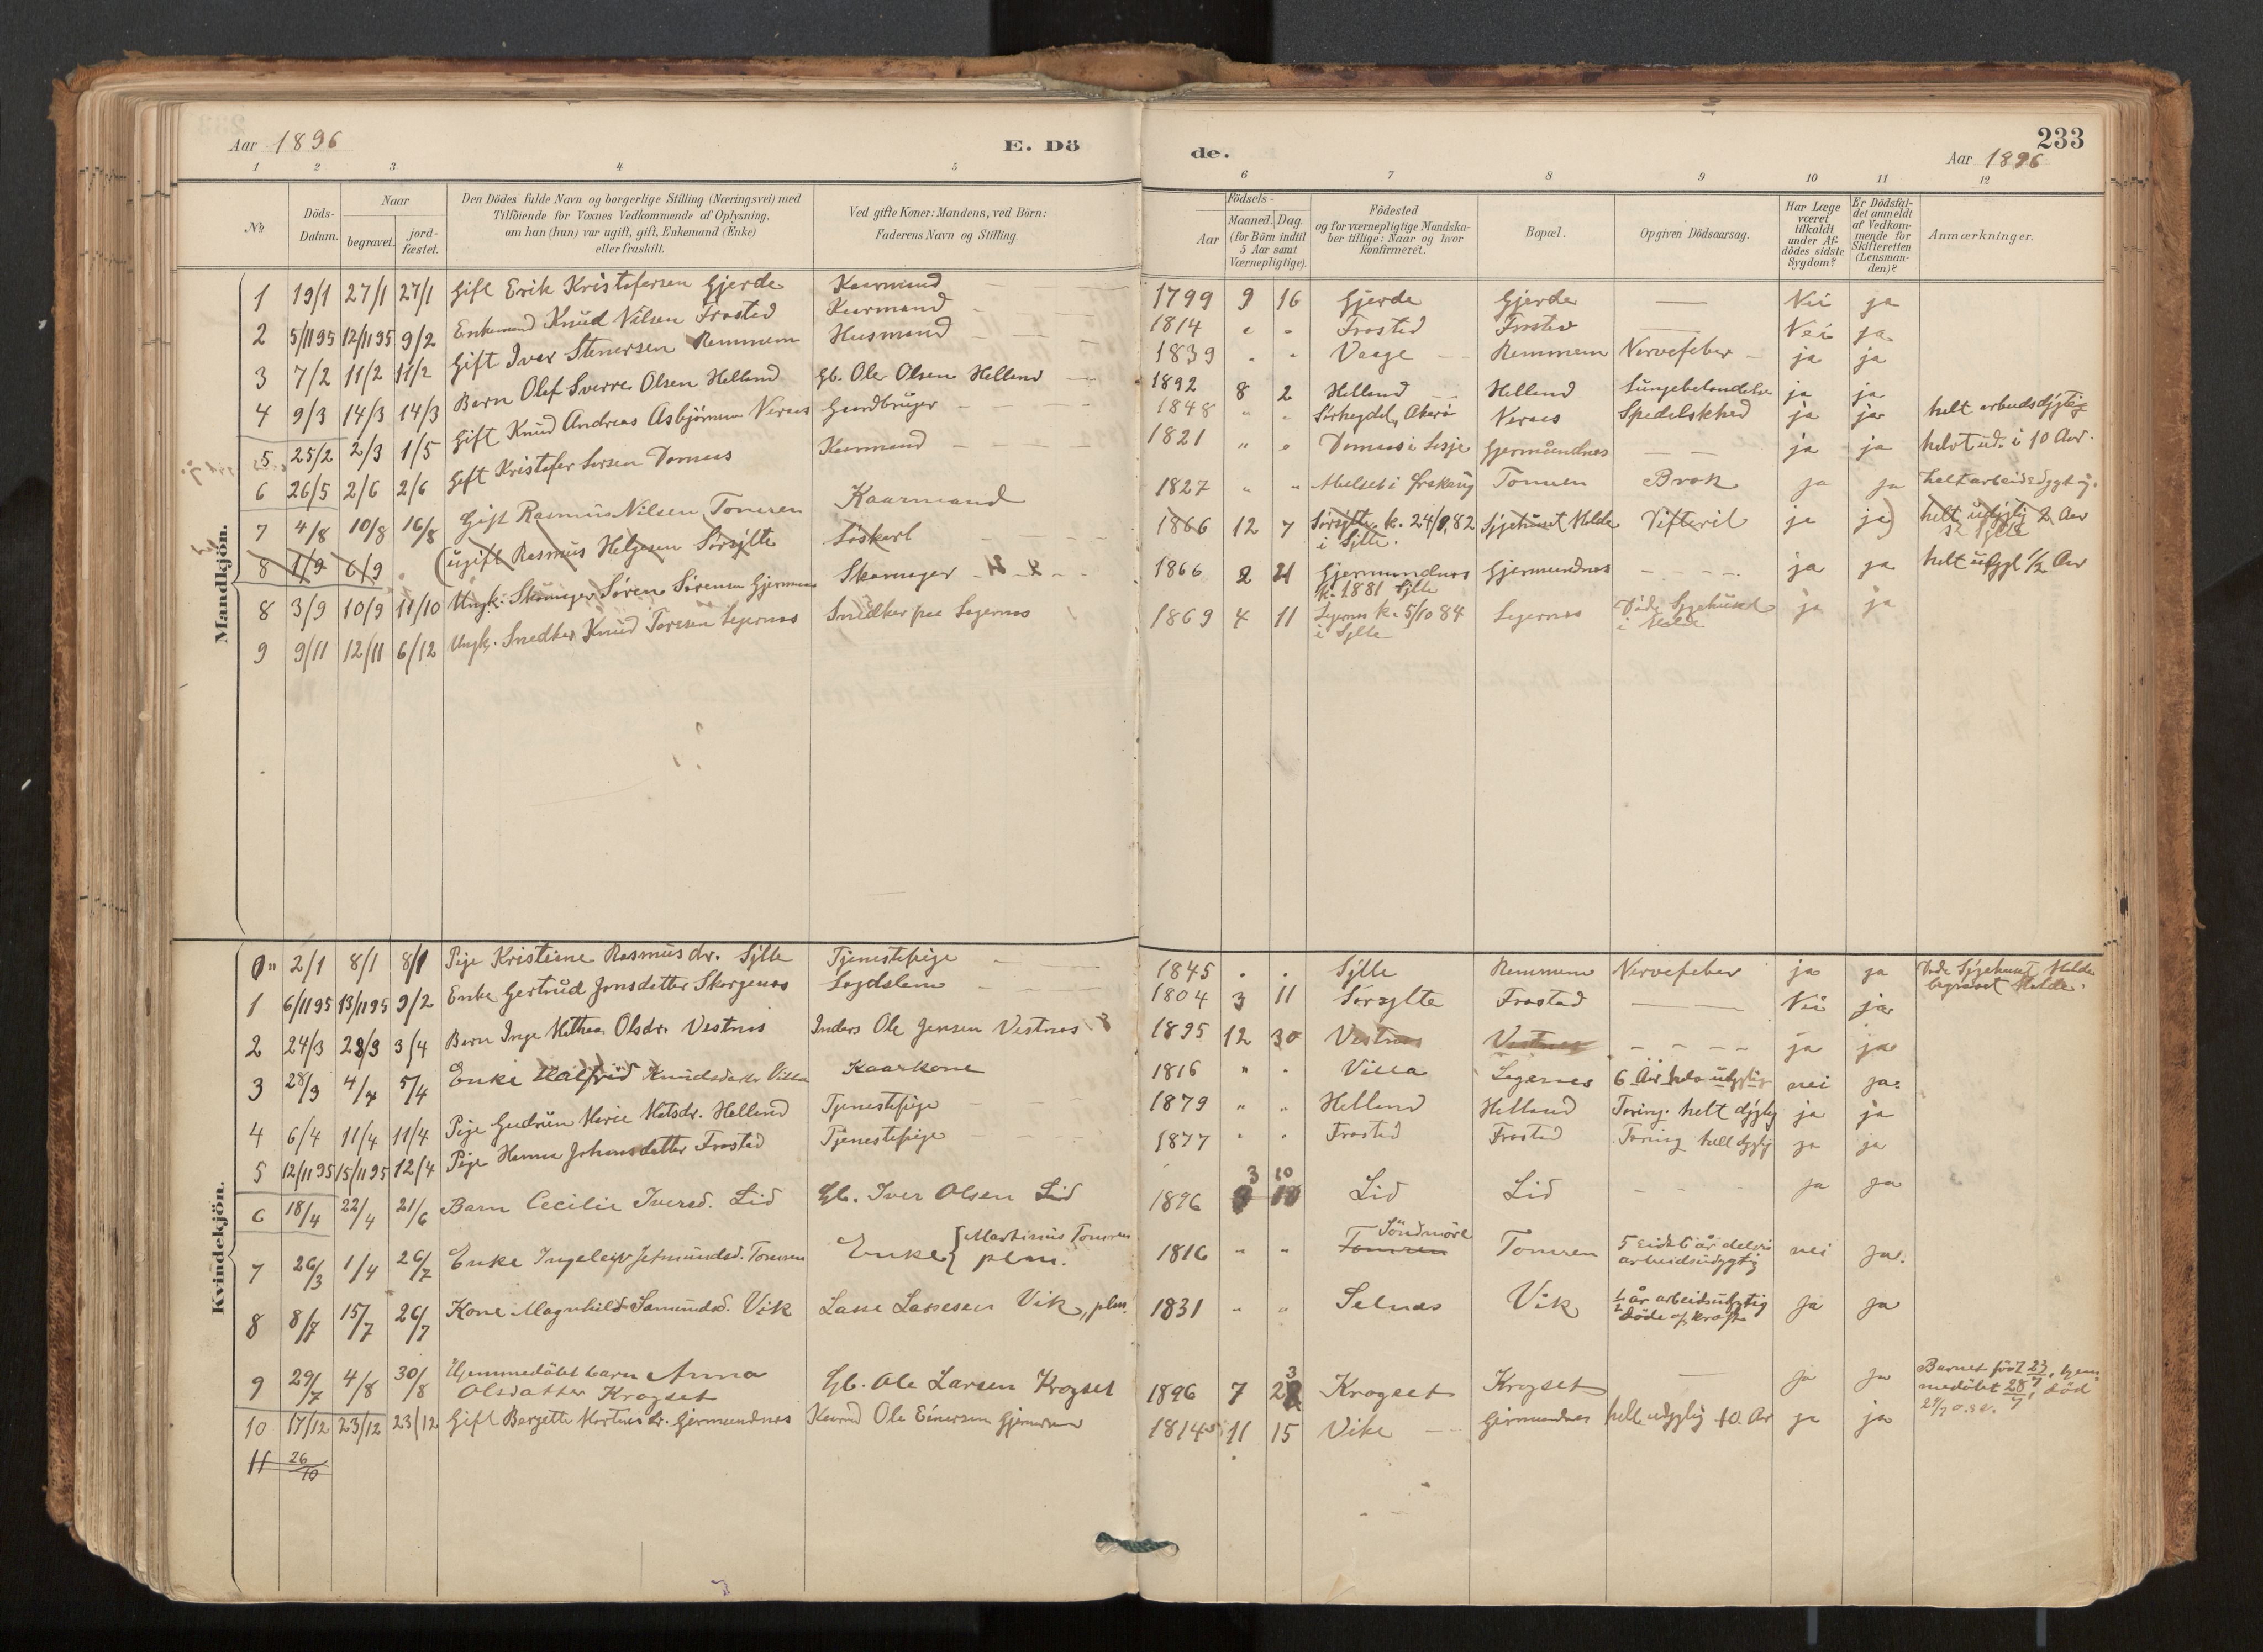 233
Aar 1896
E. Dö
de.
Aar 1896
1 2 3 4 5 6 7 8 9 10 11 12
№
Döds-Datum.
Naar
begravet.
jord-fæstet.
Den Dödes fulde Navn og borgerlige Stilling (Næringsvei) med
Tilföiende for Voxnes Vedkommende af Oplysning,
om han (hun) var ugift, gift, Enkemand (Enke)
eller fraskilt.
Ved gifte Koner: Mandens, ved Börn:
Faderens Navn og Stilling.
Födsels-
Aar
Maaned. Dag.
(for Börn indtil
5 Aar samt
Værnepligtige).
Födested
og for værnepligtige Mandska-
ber tillige: Naar og hvor
konfirmeret.
Bopæl.
Opgiven Dödsaarsag.
Har Læge
været
tilkaldt
under Af-
dödes sidste
Sygdom?
Er Dödsfal-
det anmeldt
af Vedkom-
mende for
Skifteretten
(Lensman-
den)?
Anmærkninger.
Mandkjön.
1 19/1 27/1 27/1 Gift Erik Kristofersen Gjerde Kaarmand 1799 9 16 Gjerde Gjerde — Nei ja
2 5/11 95 12/11 95 9/2 Enkemand Knud Nilsen Frostad Kaarmand 1814 " " Frostad Frostad — Nei ja
3 7/2 11/2 11/2 Gift Iver Stenersen Remmem Husmand 1839 " " Vaage Remmem Nervefeber ja ja
4 9/3 14/3 14/3 Barn Olof Sverre Olsen Helland Gb. Ole Olsen Helland 1892 8 2 Helland Helland Lungebetændelse ja ja
5 25/2 2/3 1/5 Gift Knud Andreas Asbjörnsen Neraas Gaardbruger 1848 " " Akerö Neraas Spedalskhed ja ja helt arbeidsdygtig
6 26/5 2/6 2/6 Gift Kristofer Larsen Domaas Kaarmand 1821 " " Domaas i Lesje Gjermundnes — — ja ja i 10 Aar.
7 4/8 10/8 16/8 Gift Rasmus Nilsen Tomren Kaarmand 1827 " " Tomren Brok ja ja helt arbeidsdygtig.
8 1/9 6/9 (ugift Rasmus Helgesen Sörsylte Löskarl 1866 12 7 Sörsylte. k. 24/9 82 i Sylte. Sygehuset Molde ja ja) helt udygtig 2 Aar
8 3/9 10/9 11/10 Ungk. Skomager Sören Sörensen Gjermundnes Skomager 1866 2 21 Gjermundnes k. 1881 Sylte Gjermundnes — ja ja helt udygt 1/2 Aar
9 9/11 12/11 6/12 Ungk. Snedker Knud Toresen Legernes Snedker paa Legernes 1869 4 11 Legernes k. 5/10 84 i Sylte Legernes Döde Sygehuset i Molde ja ja
Kvindekjön.
0" 2/1 8/1 8/1 Pige Kristiane Rasmusdr. Sylte Tjenestepige 1845 " " Sylte Remmem Nervefeber ja ja Döde Sygehuset Molde begravet Molde.
1 6/11 95 13/11 95 9/2 Enke Gertrud Jonsdatter Skorgenes Lægdslem 1804 3 11 Sörsylte Frostad — Nei ja
2 24/3 28/3 3/4 Barn Inge Mathea Olsdr. Vestnes Inders Ole Jensen Vestnes 1895 12 30 Vestnes Vestnes — ja ja
3 28/3 4/4 5/4 Enke Halfrid Knudsdatter Villa Kaarkone 1816 " " Villa Legernes 6 Aar helt udygtig nei ja.
4 6/4 11/4 11/4 Pige Gudrun Marie Matsdr. Helland Tjenestepige 1879 " " Helland Helland Tæring. helt dygtig ja ja
5 12/11 95 15/11 95 12/4 Pige Hanna Johansdatter Frostad Tjenestepige 1877 " " Frostad Frostad Tæring helt dygtig ja ja
6 18/4 22/4 21/6 Barn Cecilie Iversd. Lid Gb. Iver Olsen Lid 1896 3 10 Lid Lid — ja ja
7 26/3 1/4 26/7 Enke Ingeleiv Jetmundsd. Tomren Enke { Martinus Tomren plan. 1816 " " Tomren Söndmöre Tomren arbeidsudygtig nei ja.
8 8/7 15/7 26/7 Kone Magnhild Samundsd. Vik Lasse Lassesen Vik, plm. 1831 " " Selnæs Vik 1/2 år arbeidsudygtig ja ja
9 29/7 4/8 30/8 Hjemmedöbt barn Anna Olsdatter Krogset Gb. Ole Larsen Krogset 1896 7 23 Krogset Krogset — ja ja Barnet födt 23/7, hjem-
medöbt 28/7, död
29/7 o.s.v.
10 17/12 23/12 23/12 Gift Bergette Martinusdr. Gjermundnes Kaarmd Ole Einersen Gjermundnes 1814 11 15 Vike Gjermundnes helt udygtig 10 Aar ja ja
11 26/10